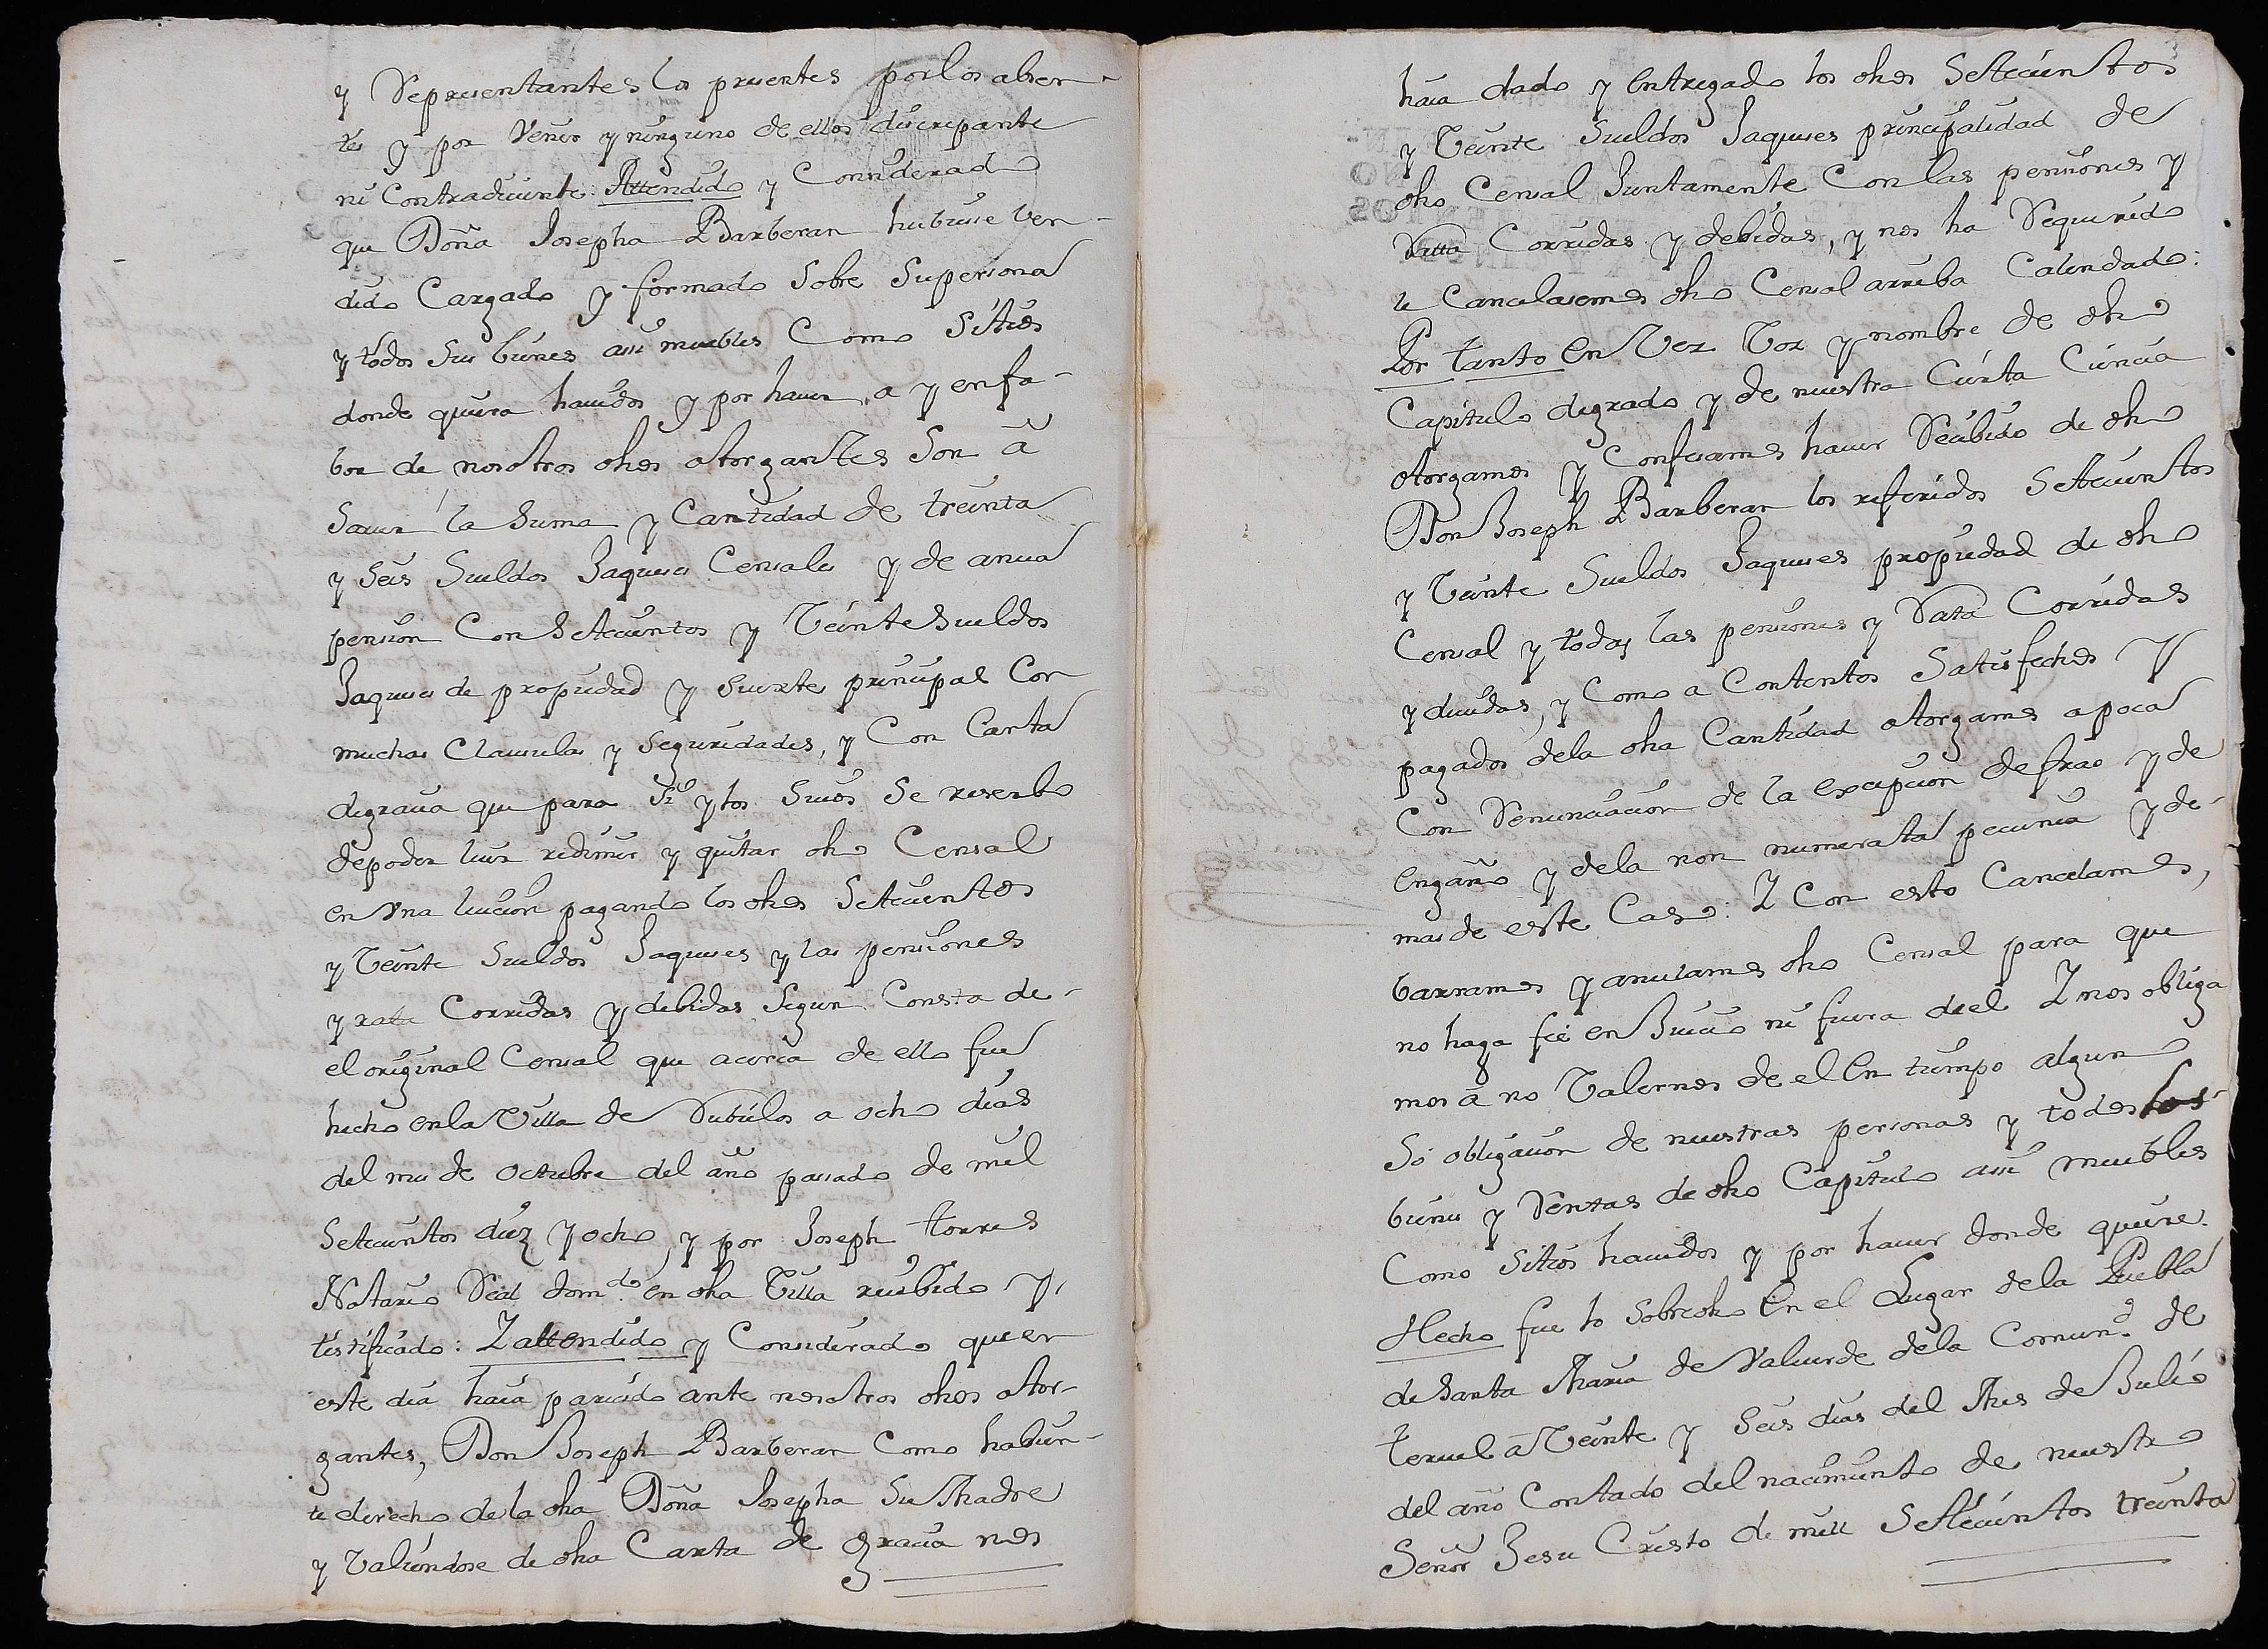 y Representantes los presentes por los absen-
tes y por Venir y ninguno de ellos discrepante
ni Contradiciente: Attendido y Considerado
que Doña Josepha Barberan hubiese ven-
dido Cargado y formado sobre supersona
y todos sus bienes assi muebles Como Sitios
donde quiera havidos y por haver, a y enfa-
bor de nosotros dhos otorgantes Son â
saver la suma y Cantidad de treinta
y Seis Sueldos Jaqueses Censales y de anua
pension Con Setecientos y Veinte Sueldos
Jaqueses de propiedad y suerte principal Con
muchas Clausulas y Seguridades, y Con Carta
degracia que para Si y los Suios Se reserbo
depoder luir redimir y quitar dho Censal
en Una luicion pagando los dhos Setecientos
y Veinte Sueldos Jaqueses y las pensiones
y rata Corridas y debidas Segun Consta de-
el original Censal que acerca de ello fue
hecho en la Villa de Rubielos a ocho dias
del mes de octubre del año passado de mil
Setecientos diez y ocho, y por Joseph torres
Notario Real dom.do en dha Villa recibido y
testificado: Y attendido y Considerado que en
este dia haia parecido ante nosotros dhos otor-
gantes, Don Joseph Barberan Como habien-
te derecho de la dha Doña Josepha Su Madre
y Valiendose de dha Carta de gracia nos
haia dado y entregado los dhos Setecientos
y Veinte Sueldos Jaqueses principalidad de
dho Censal Juntamente Con las pensiones y
Ratta Corridas y debidas, y nos ha Requerido
le Cancelasemos dho Censal arriba Calendado:
Por tanto en Vez Voz y nombre de dho
Capitulo degrado y de nuestra Cierta Ciencia
otorgamos y Confesamos haver Recibido de dho
Don Joseph Barberan los referidos Setecientos
y Veinte Sueldos Jaqueses propiedad de dho
Censal y todas las pensiones y Rata Corridas
y devidas, y Como a Contentos Satisfechos y
pagados dela dha Cantidad otorgamos apoca
Con Renunciacion de la excepcion defrao y de
engaño y dela non numerata pecunia y de-
mas de este Caso: Y Con esto Cancelamos,
barramos y anulamos dho Censal para que
no haga fee en Juicio ni fuera de el Y nos obliga
mos â no Valernos de el en tiempo alguno
Só obligacion de nuestras personas y todos los
bienes y Rentas de dho Capitulo assi muebles
Como sitios havidos y por haver donde quiere.
Hecho fue lo Sobredho en el Lugar dela Puebla
de Santa Maria de Valverde dela Comun.d de
teruel â Veinte y Seis dias del Mes de Julio
del año Contado del nacimiento de nuestro
Señor Jesu Cristo de mill Setecientos treinta